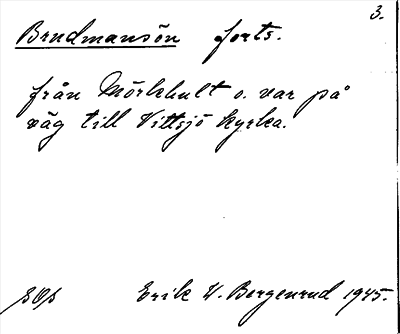 3.
Brudmansön forts.
från Mörkhult o. var på
väg till Vittsjö kyrka.
Erik W. Borgenrud 1945.